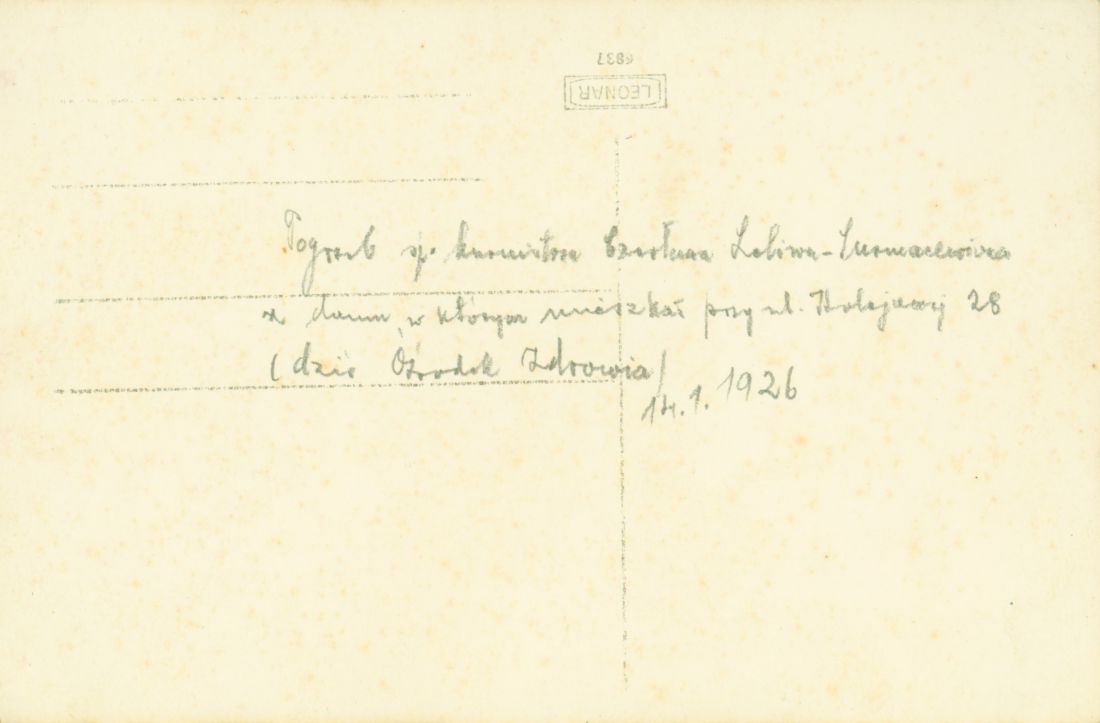 6837
LEONAR
Pogrzeb śp. burmistrza Czesława Leliwa-Surmacewicza
z domu, w którym mieszkał przy ul. Kolejowej 28
(dziś Ośrodek Zdrowia)
14.1.1926